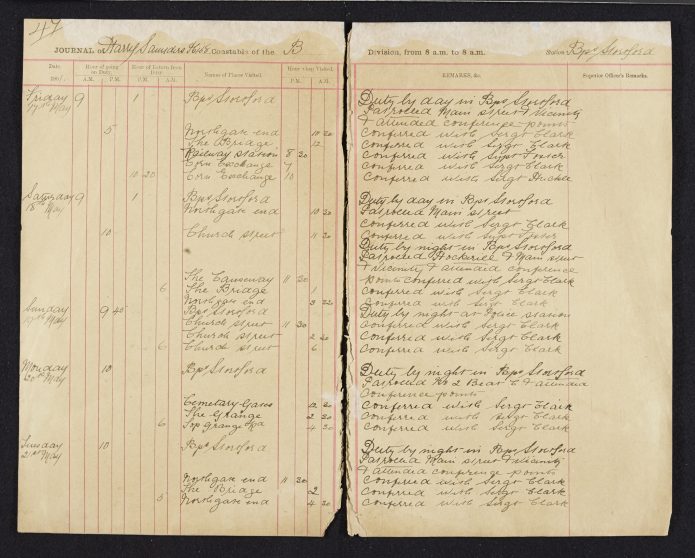 47
JOURNAL of Harry Saunders Constable of the B Division, from 8 a.m. to 8 a.m. Station Bps Stortford
Date. 190 . Hour of going on Duty. Hour of Return from Duty. Names of Places Visited. Hour when Visited. REMARKS, &c. Superior Officer's Remarks.
A.M. P.M. A.M. P.M. P.M. A.M.
Friday 9 1 Bps Stortford Duty by day in Bps Stortford
17th May Patroled Main street & vicinity
& attended conference points
5 Northgate end 10 20 Conferred with Sergt Clark
The Bridge 12 Conferred with Sergt Clark
Railway station 8 30 Conferred with Supt Foster
Corn Exchange 7 Conferred with Sergt Clark
10 20 Corn Exchange 10 Conferred with Sergt
Saturday 9 1 Bps Stortford Duty by day in Bps Stortford
18th May Northgate end 10 30 Patroled Main street
Conferred with Sergt Clark
10 Church street 11 30 Conferred with Supt Foster
Duty by night in Bps Stortford
Patroled Hockerill & Main street
& vicinity & attended conference
The Causeway 11 30 points Conferred with Sergt Clark
6 The Bridge 1 Conferred with Sergt Clark
Northgate end 3 30 Conferred with Sergt Clark
Sunday 9 40 Bps Stortford Duty by night at Police station
19th May Church street 11 30 Conferred with Sergt Clark
Church street 2 30 Conferred with Sergt Clark
6 Church street 6 Conferred with Sergt Clark
Monday 10 Bps Stortford Duty by night in Bps Stortford
20th May Patroled No 2 Beat & attended
Conference points
Cemetary Gates 12 30 Conferred with Sergt Clark
The Grange 2 30 Conferred with Sergt Clark
6 Top Grange Rd 4 30 Conferred with Sergt Clark
Tuesday 10 Bps Stortford Duty by night in Bps Stortford
21st May Patroled Main street & vicinity
& attended conference points
Northgate end 11 30 Conferred with Sergt Clark
The Bridge 2 Conferred with Sergt Clark
5 Northgate end 4 30 Conferred with Sergt Clark